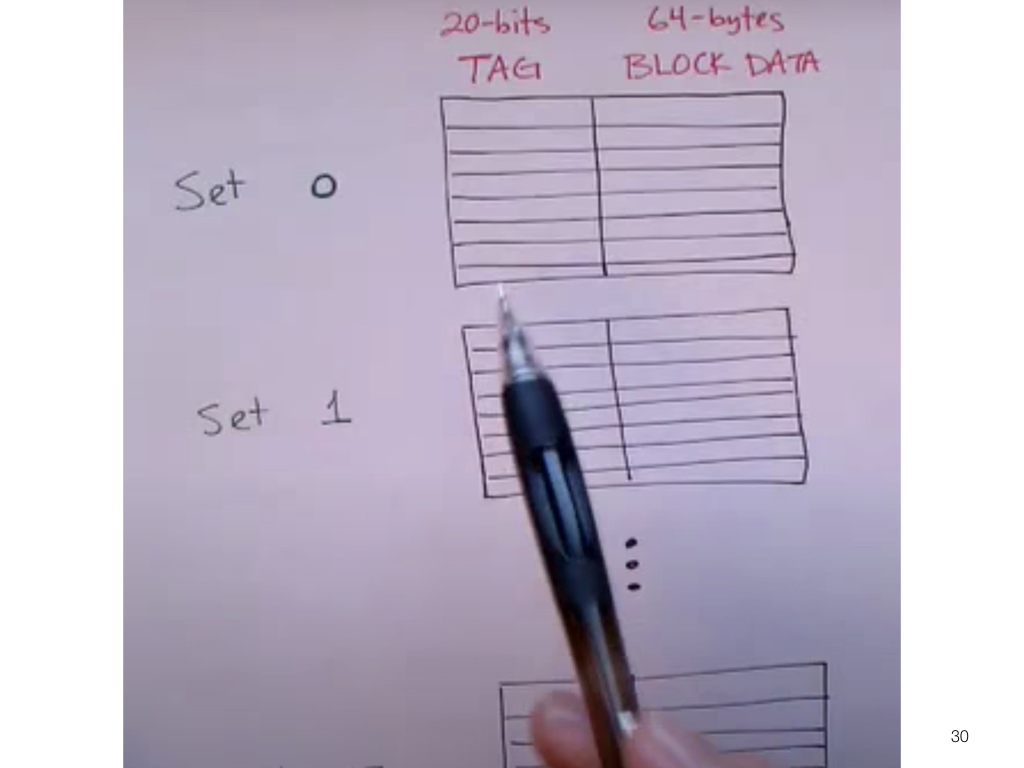 20-bits 64-bytes
TAG BLOCK DATA
Set 0
Set 1
30